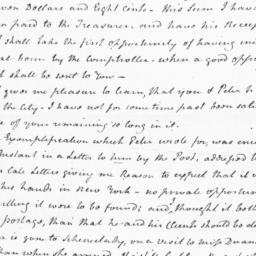 ven Dollars and Eight Cents — this Sum I have
n paid to the Treasurer, and have his Receip
I shall take the first opportunity of having
al born by the Comptroller. when a good oppor
t shall be sent to You —
t gives me pleasure to learn, that you & Peter
the City. I have not for some time past been sat
e of your remaining so long in it.
Exemplification which Peter wrote for, was enc
Instant in a Letter to him by the Post, addressed t
Late Letters giving me Reason to expect that it
his hands in New York — no private opportun
lling it were to be found and I thought it bett
postage, than that he and his Clients should be d
is gone to Schenectady, on a visit to Miss Duane